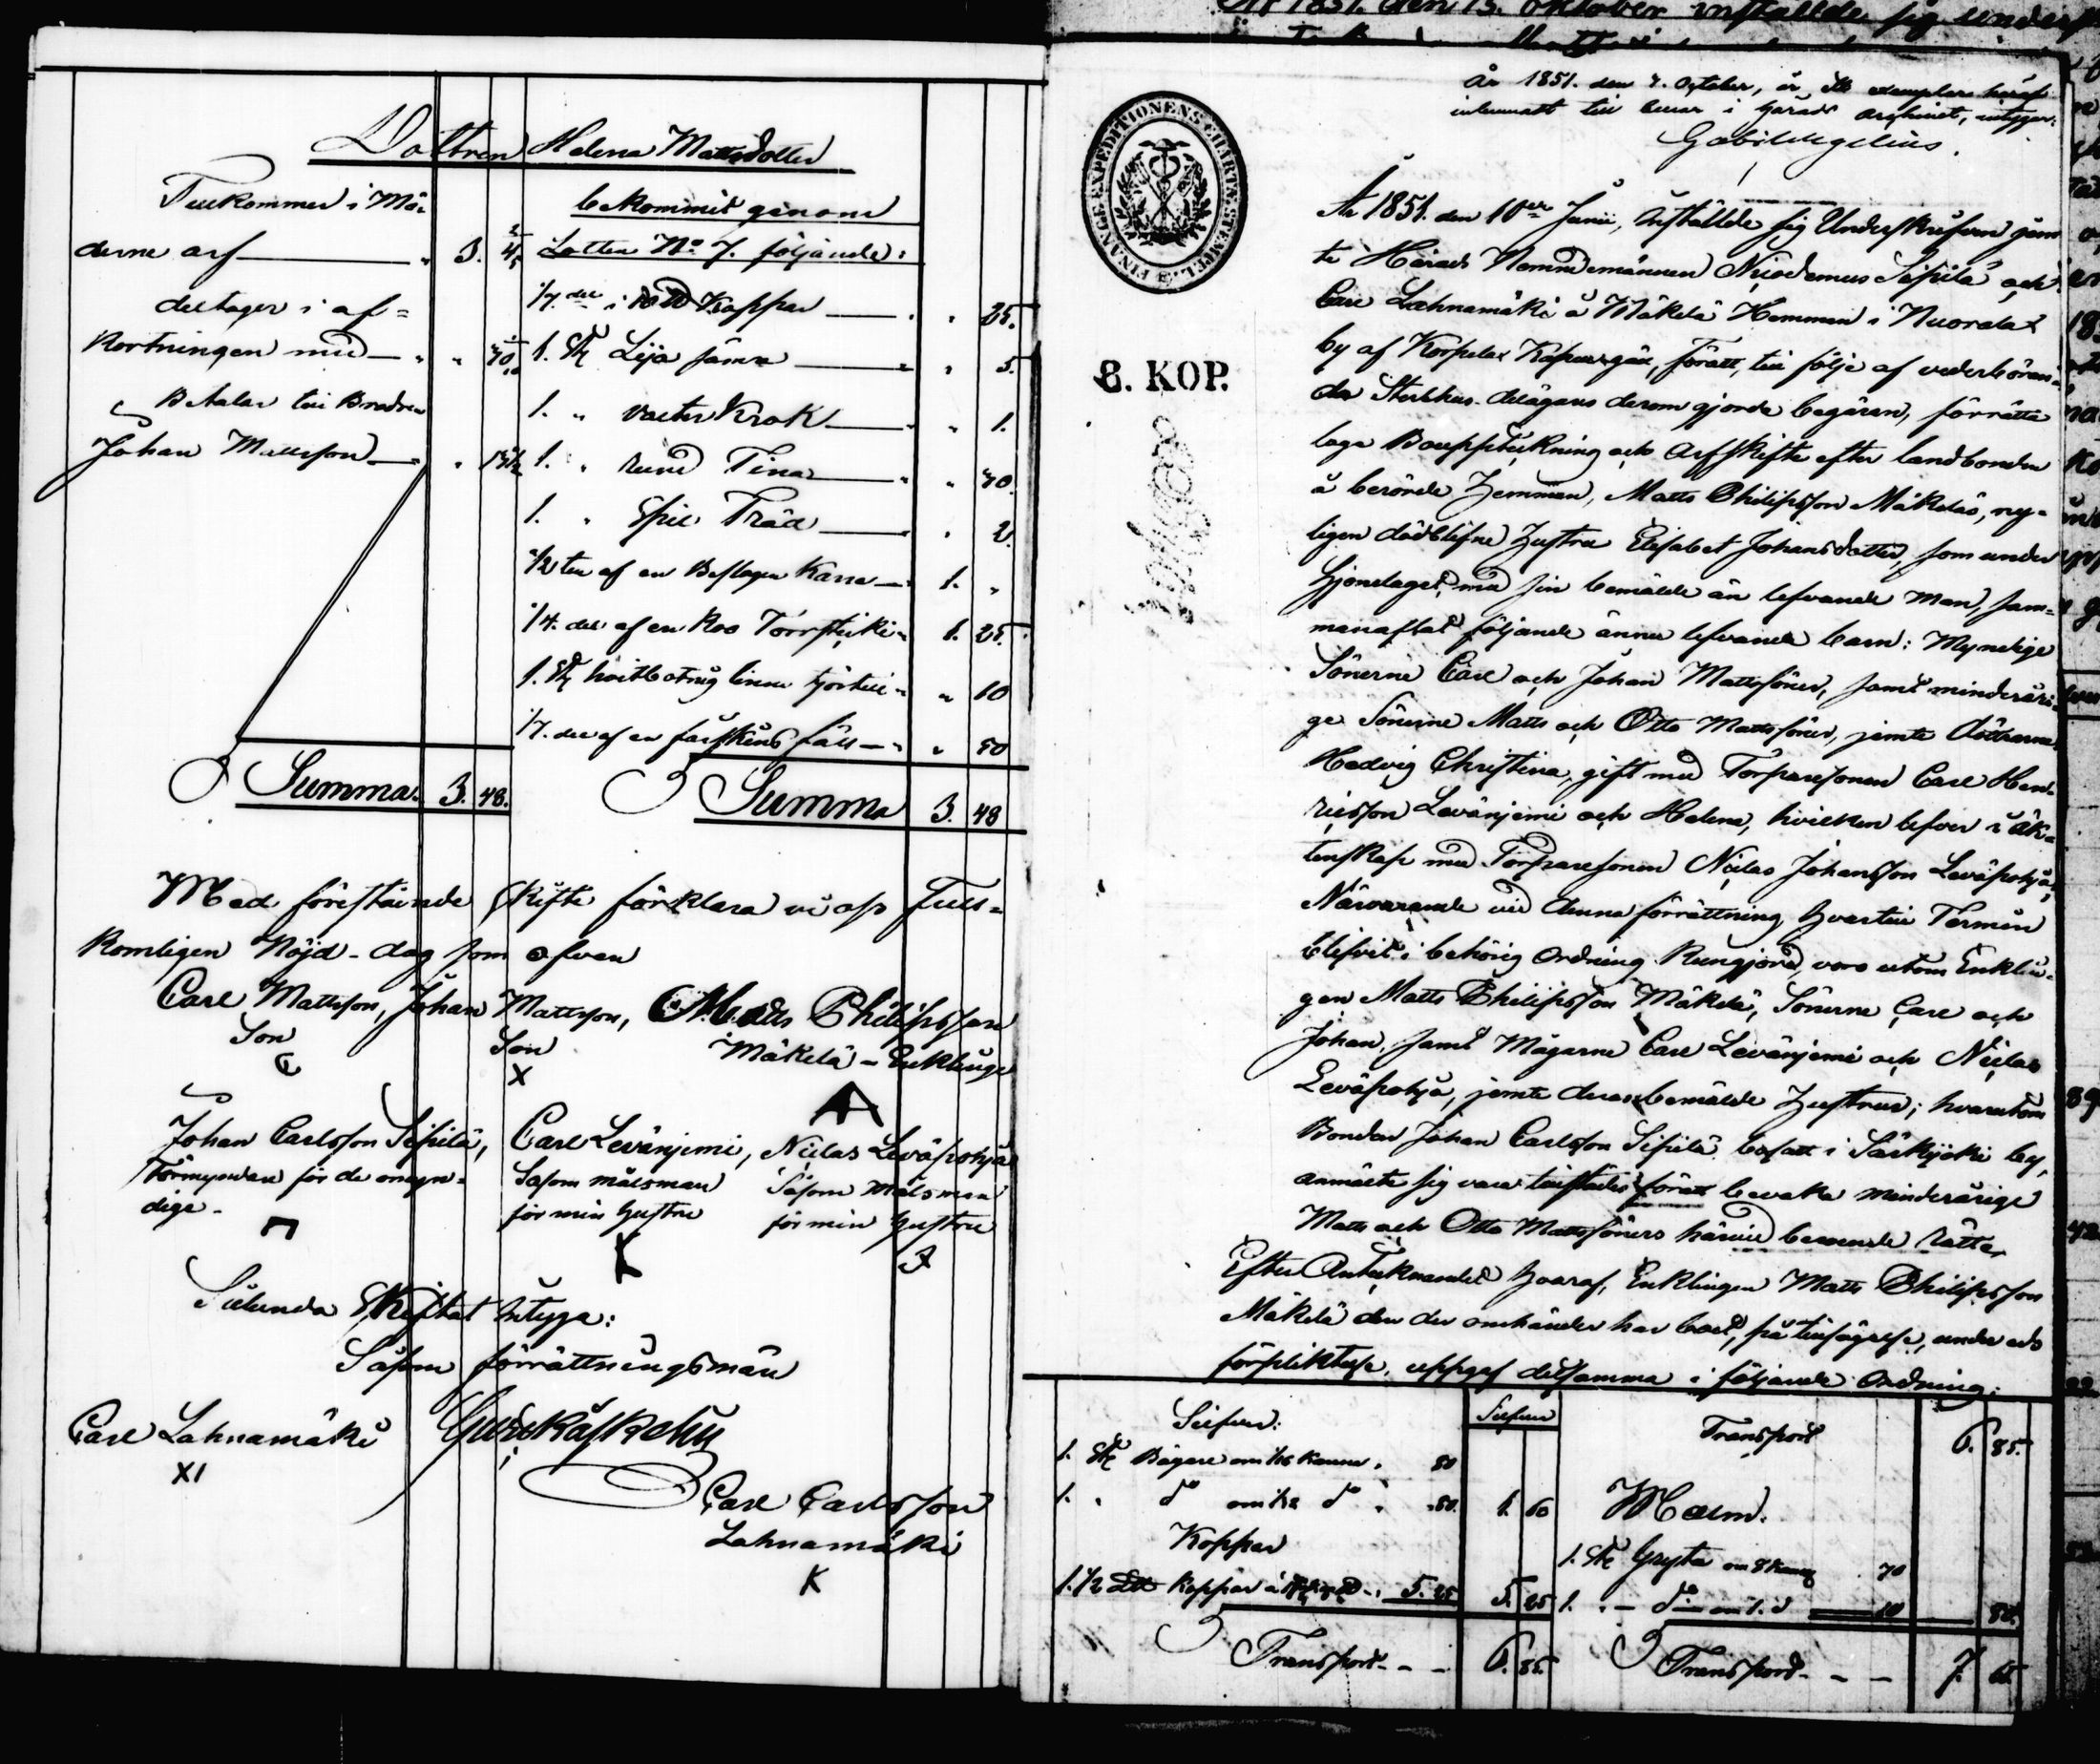 Dottren Helena Mattsdotter
Tillkommer i Mö-
derne arf 3. 4 2/5
deltager i af=
kortningen med
Betalar till Brodren
Johan Mattsson
Summa. 3. 48.
bekommit genom
Lotten No 7. följande:
1/7. del i Koppar 25.
1. St Lija jämn 5.
1. " Krok 1.
1. " rund Tina 40.
1. " Träd 2.
1/2 ten af en Beslagen Kärra 1. "
1/4. del af en Roo 1. 25.
1. St linne 10
1/7. del af en fårskins fäll 50
Summa 3. 48
Med förestående skifte förklara vi oss full-
komligen Nöjd - dag som ofvan
Carl Mattsson, Johan Mattsson, Matts Philipsson
Son Son Mäkelä - Enklinge
X
Johan Carlsson Sipilä, Carl Levänjemi, Niclas Leväpohja
Förmyndare för de omyn- Såsom målsman Såsom målsman
dige. för min hustru för min hustru
Sålunda Skiftat intyga:
Såsom förrättningsmän
Carl Lahnamäki
XI
Carl Carlsson
Lahnamäki
K
År 1851. den 13. oktober instälde sig
År 1851. den 7. October, är ett exemplar häraf
inlemnadt till i Härads archivet, intygar:
FINANCE EXPEDITIONENS CHARTÆ STEMPEL
8. KOP.
År 1851. den 10de Junii, instälde sig Underskrifven jem-
te Härads Nemndemännen Nicodemus Sipilä och
Carl Lahnamäki å Mäkelä Hemman i Nuorala
by af Korpelax Kapell, föratt, till följe af vederböran-
des Sterbhus delägares derom gjorde begäran, förrätta
laga Bouppteckning och Arfskifte efter landbonden
å berörde Hemman, Matts Philipsson Mäkeläs, ny-
ligen dödblifne Hustru Elisabet Johansdotter, som under
hjonelaget med sin bemälde än lefvande man, sam-
manaflat följande ännu lefvande barn: Myndige
Sönerne Carl och Johan Mattssöner, samt minderåri-
ge Sönerne Matts och Otto Mattssöner, jemte döttrarne
Hedvig Christina, gift med Torparesonen Carl Hen-
ricsson Levänjemi och Helena, hvilken lefver i äk-
tenskap med Torparesonen Niclas Johansson Leväpohja,
Närvarande vid denna förrättning hvartill Termin
blifvit i behörig ordning kungjord, voro utom Enklin-
gen Matts Philipsson Mäkelä, Sönerne Carl och
Johan, samt Mågarne Carl Levänjemi och Niclas
Leväpohja, jemte deras bemälde hustrur; hvarutom
Bonden Johan Carlsson Sipilä bosatt i Särkijoki by,
anmälte sig vara tillstädes föratt bevaka minderårige
Matts och Otto Mattssöners härvid beroende rätt.
Efter Antecknandet hvaraf, Enklingen Matts Philipsson
Mäkelä den der omhänder har boet, på tillsägelse, under eds
förpliktelse, uppgaf detsamma i följande Ordning:
Silfver: Silfver
1. St Bägare om 1/16 Kanna . 80
1. " do om 1/32 do " 80. 1. 60
Koppar
1.1/2 Koppar 5. 25 5. 25
Transport - - 6. 85.
Transport 6. 85.
Malm.
1. St Gryta om 8 Kannor . 70
1. " - do om 1. d 10 80.
Transport - - - 7. 65.